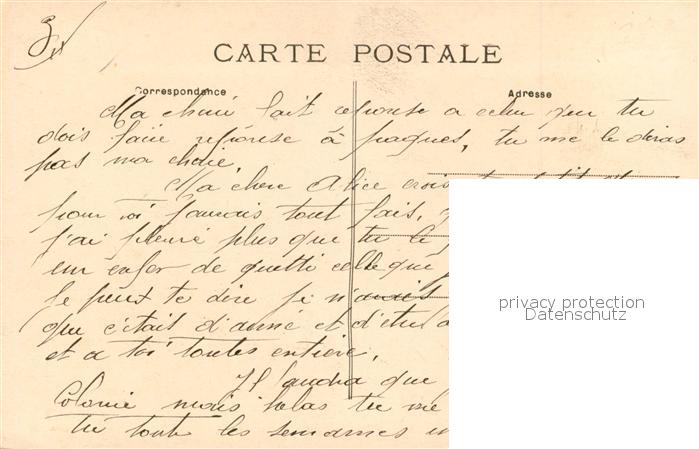 3
CARTE POSTALE
Correspondance
Adresse
Ma cherie fait reponse a celui que tu
dois faire reponse à paques, tu me le diras
pas ma cherie.
Ma chere Alice crois
pour toi j'aurais tout fait,
j'ai pleuré plus que tu
un enfer de quitter celle que
je peux te dire je n'avais
que c'était d'aimé et d'être
et a toi toutes entière,
Il faudra que
Colonie mais helas tu me
tu toute les semaines
privacy protection
Datenschutz